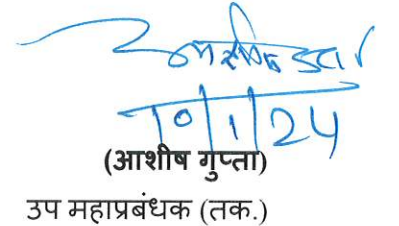 10/1/24
(आशीष गुप्ता)
उप महाप्रबंधक (तक.)